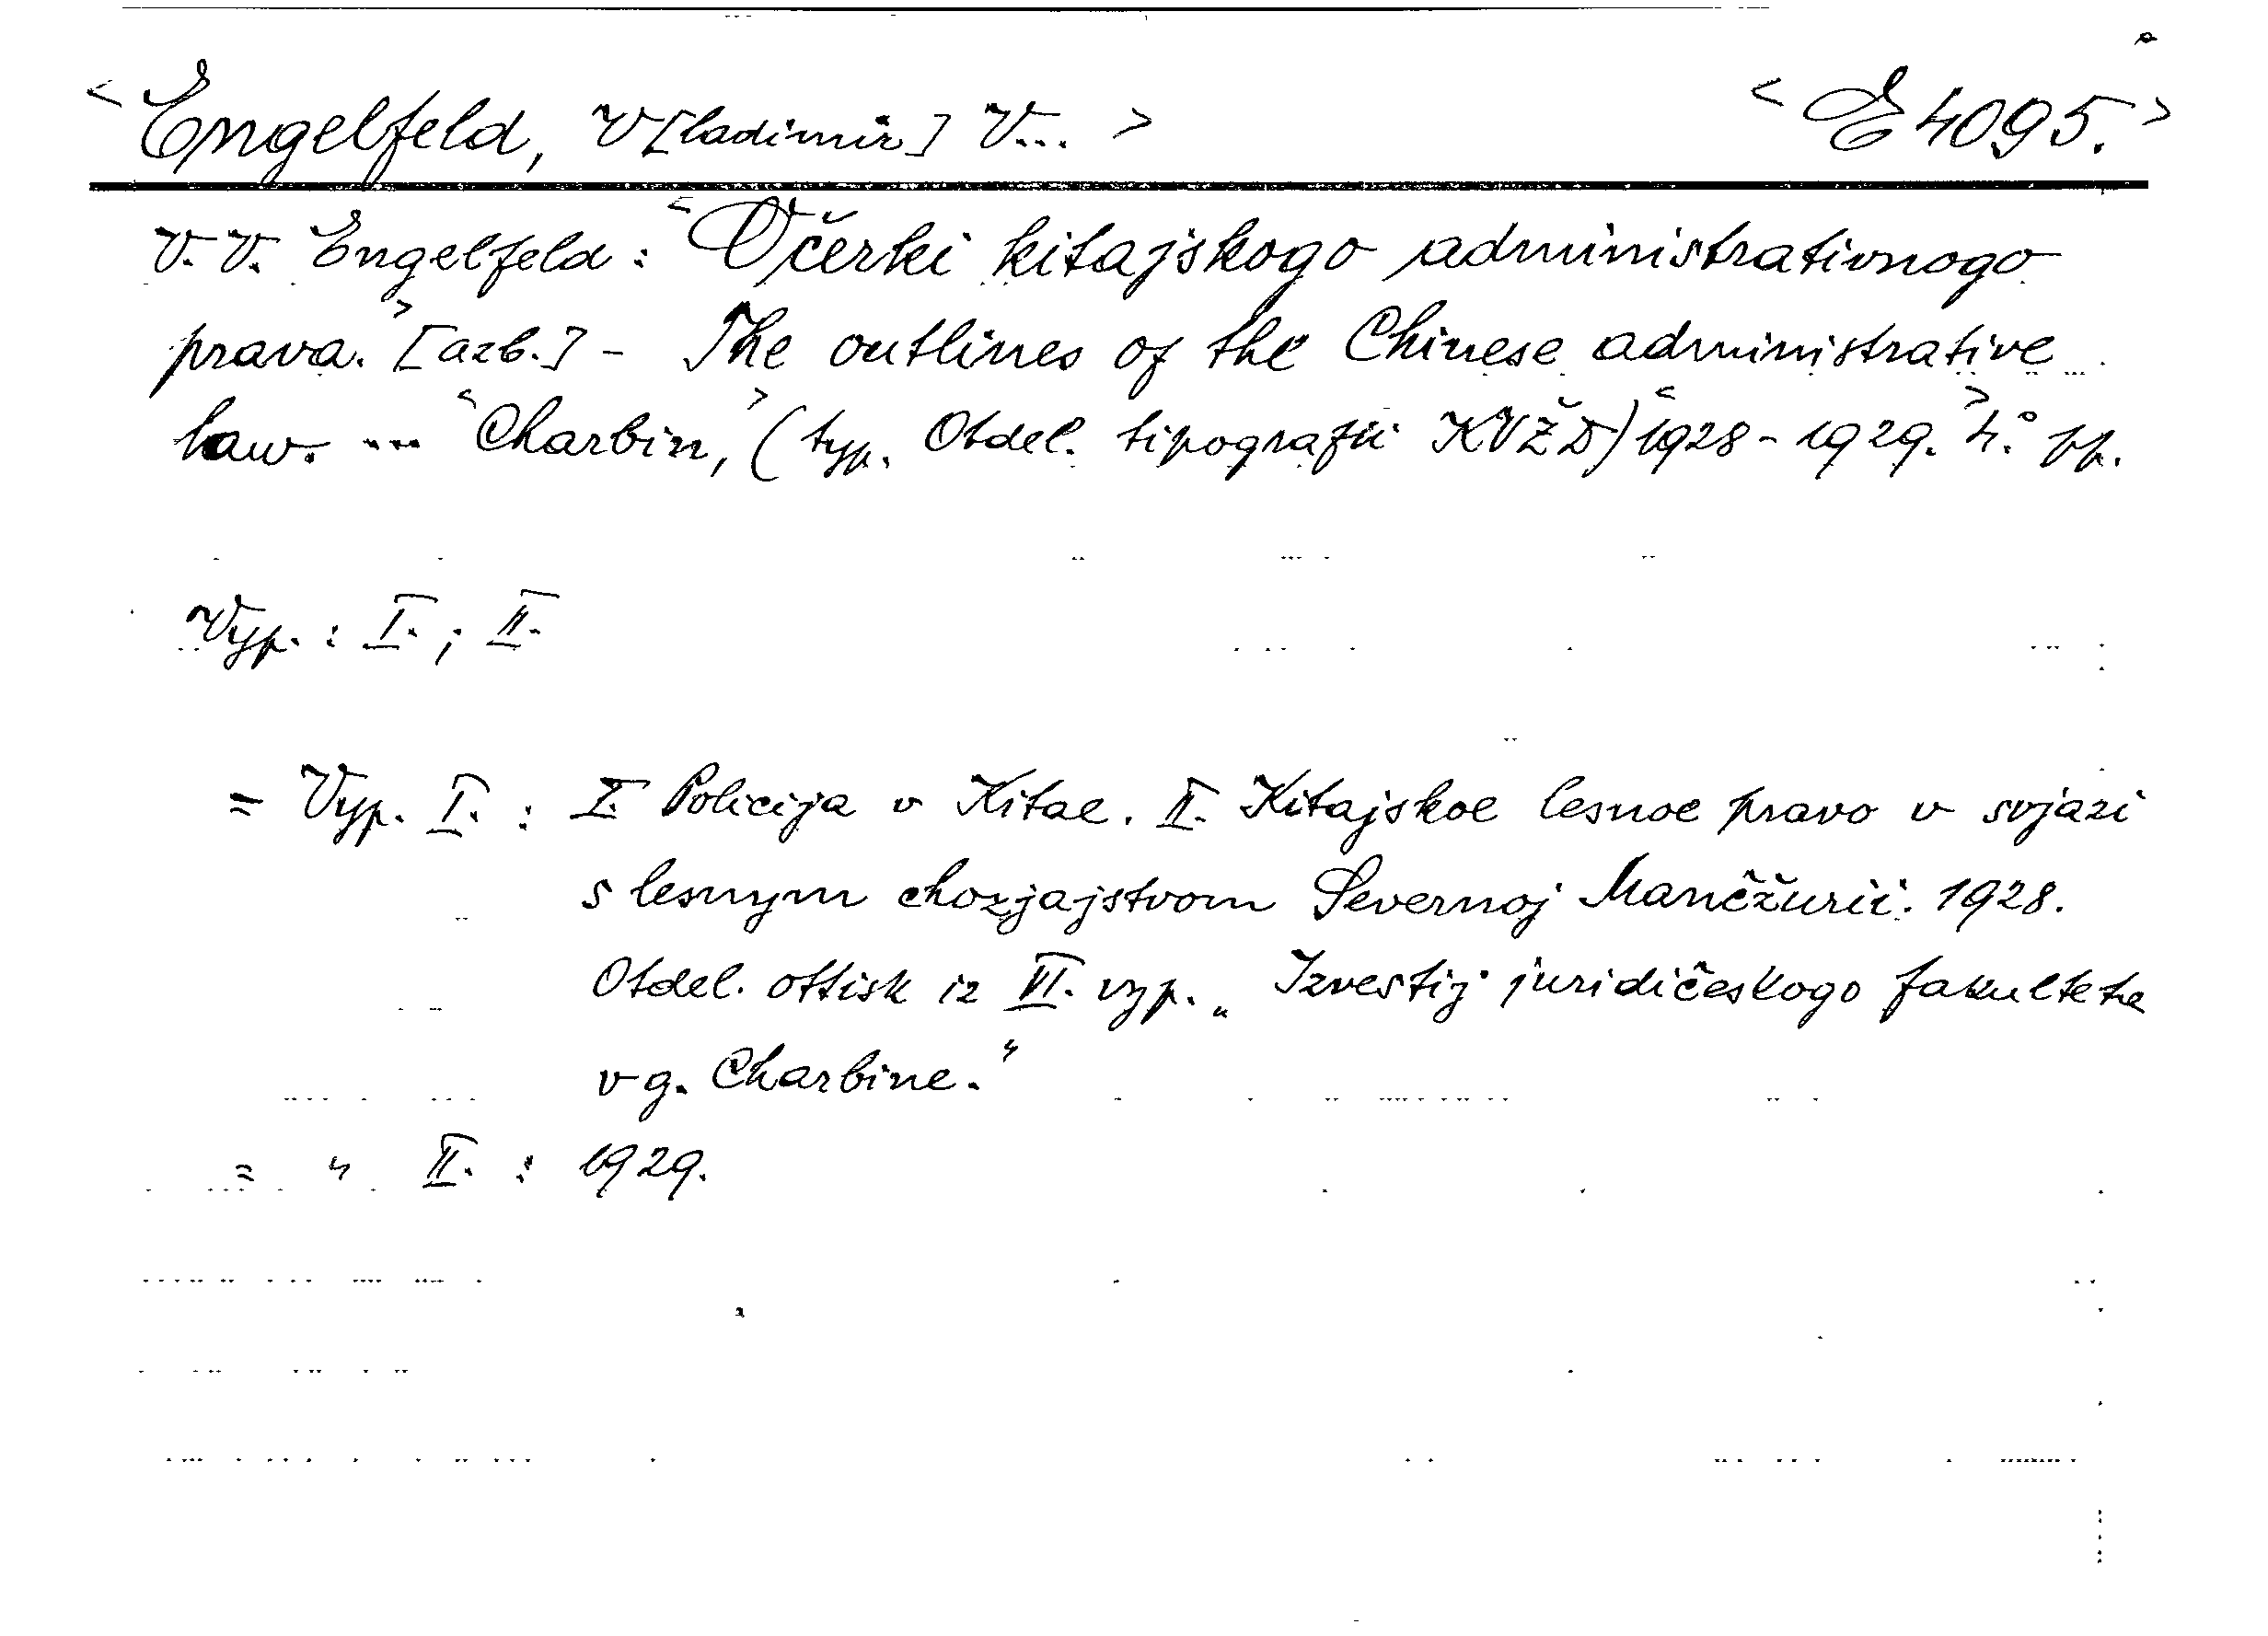 <Engelfeld, V[ladimir] V...> <E 4095.>
V. V. Engelfeld: <Očerki kitajskogo administrativnogo
prava.> [azb.] - The outlines of the Chinese administrative
law. --- <Charbin,> (typ. Otdel. tipografii KVŽD) <1928-1929.> 4.° pp.
Vyp.: I.; II.
= Vyp. I.: I. Policija v Kitae. II. Kitajskoe lesnoe pravo v svjazi
s lesnym chozjajstvom Severnoj Mančžurii. 1928.
Otdel. ottisk iz VI. vyp. „Izvestij juridičeskogo fakulteta
v g. Charbine."
= " II.: 1929.